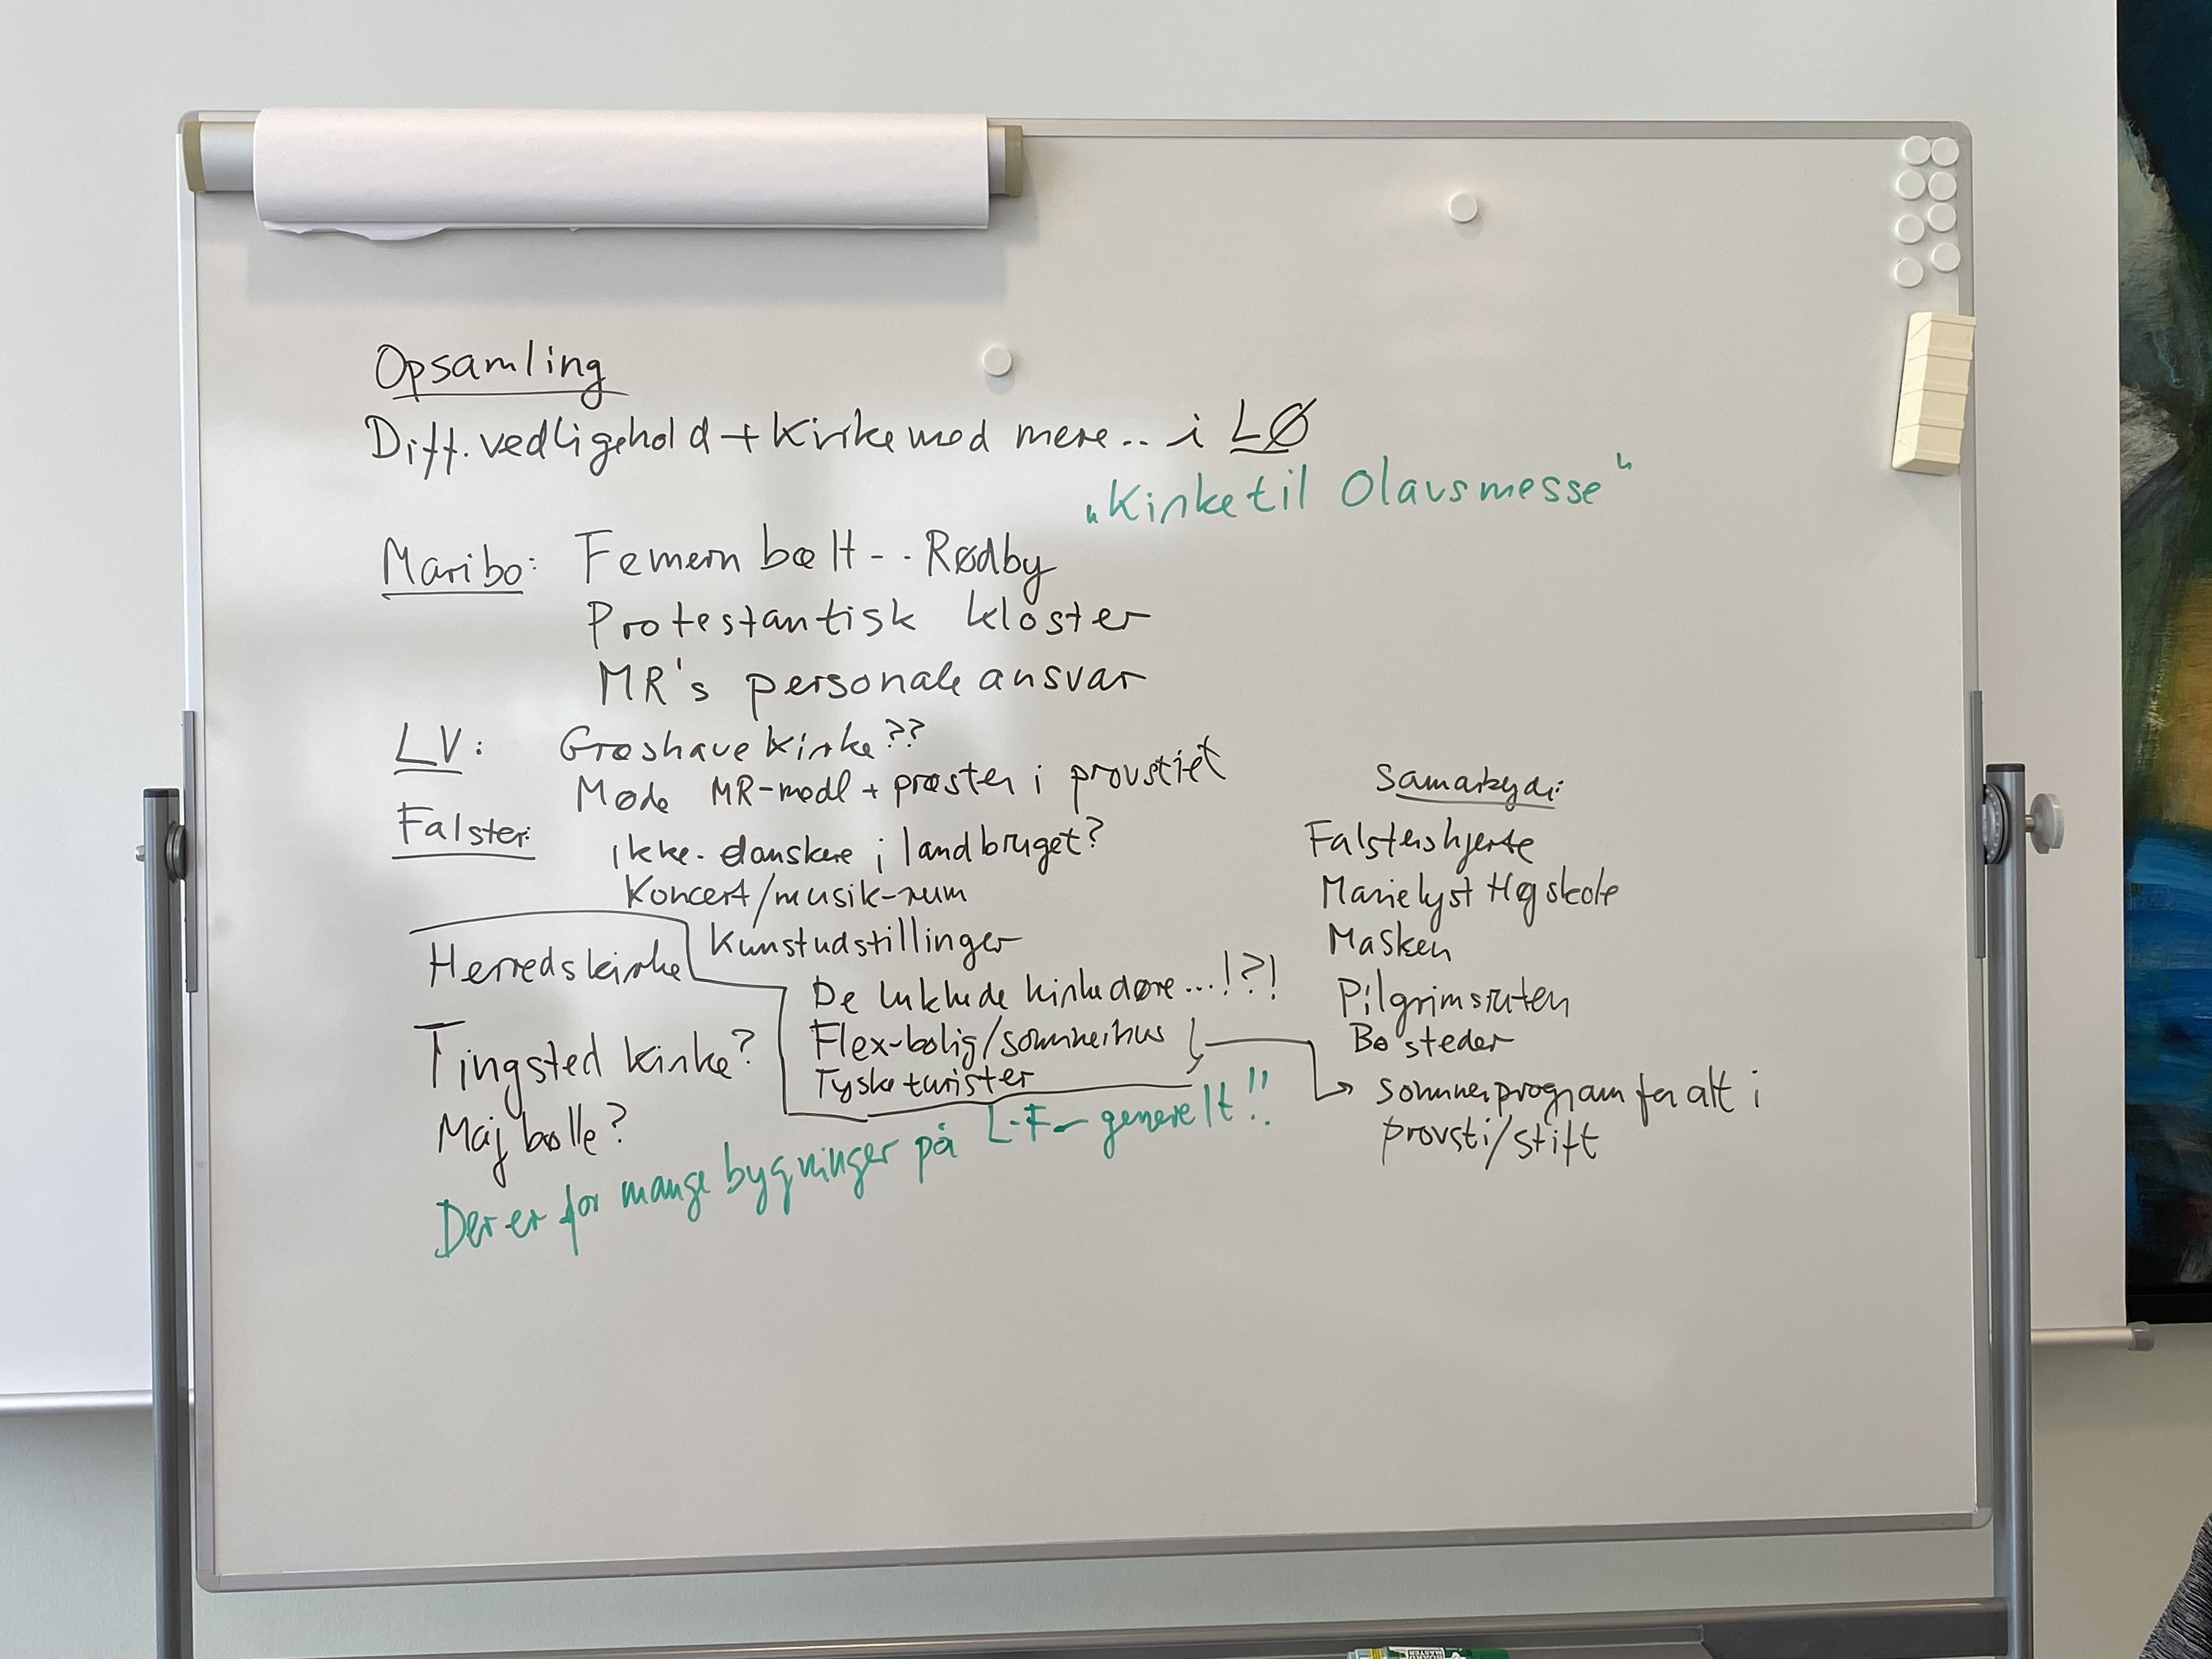 Opsamling
Diff. vedligehold + Kirke med mere.. i LØ
"Kirke til Olavsmesse"
Maribo: Femern bælt - - Rødby
Protestantisk kloster
MR's personaleansvar
LV: Græshave kirke??
Møde MR-medl + præster i provstiet
Falster:
ikke-danskere i landbruget?
Koncert/musik-rum
Kunstudstillinger
Herredskirke
De lukkede kirkedøre...!?!
Flex-bolig/sommerhus
Tyske turister
Tingsted kirke?
Majbølle?
Der er for mange bygninger på L-F - generelt!!
Samarbejde:
Falsters hjerte
Marielyst Høgskole
Masken
Pilgrimsruten
Bosteder
sommerprogram for alt i
provsti/stift